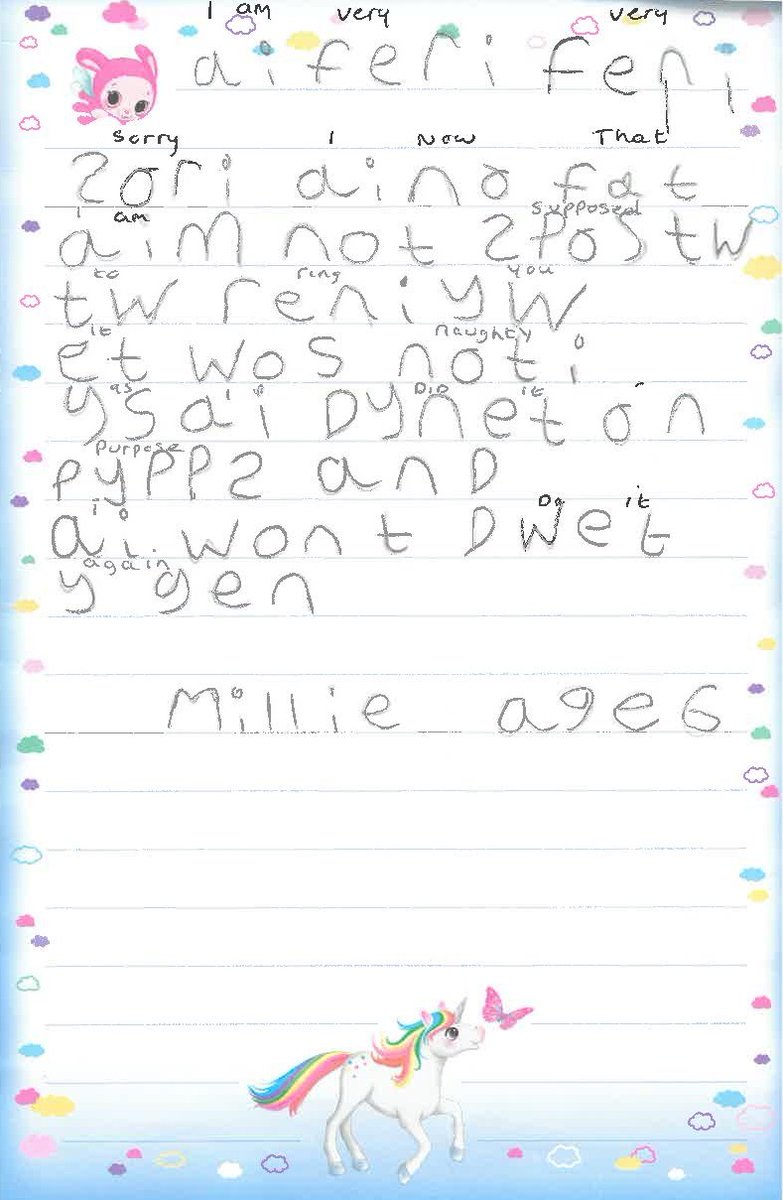 I am very very
ai feri feri
Sorry I Now That
Sori aino fat
I am supposed
aim not SPostw
to ring you
tw reniyw
it naughty
et wos noti
as DID it
ysai Dynet on
Purpose
PyPPS and
i Do it
ai wont Dwet
again
y gen
Millie age 6